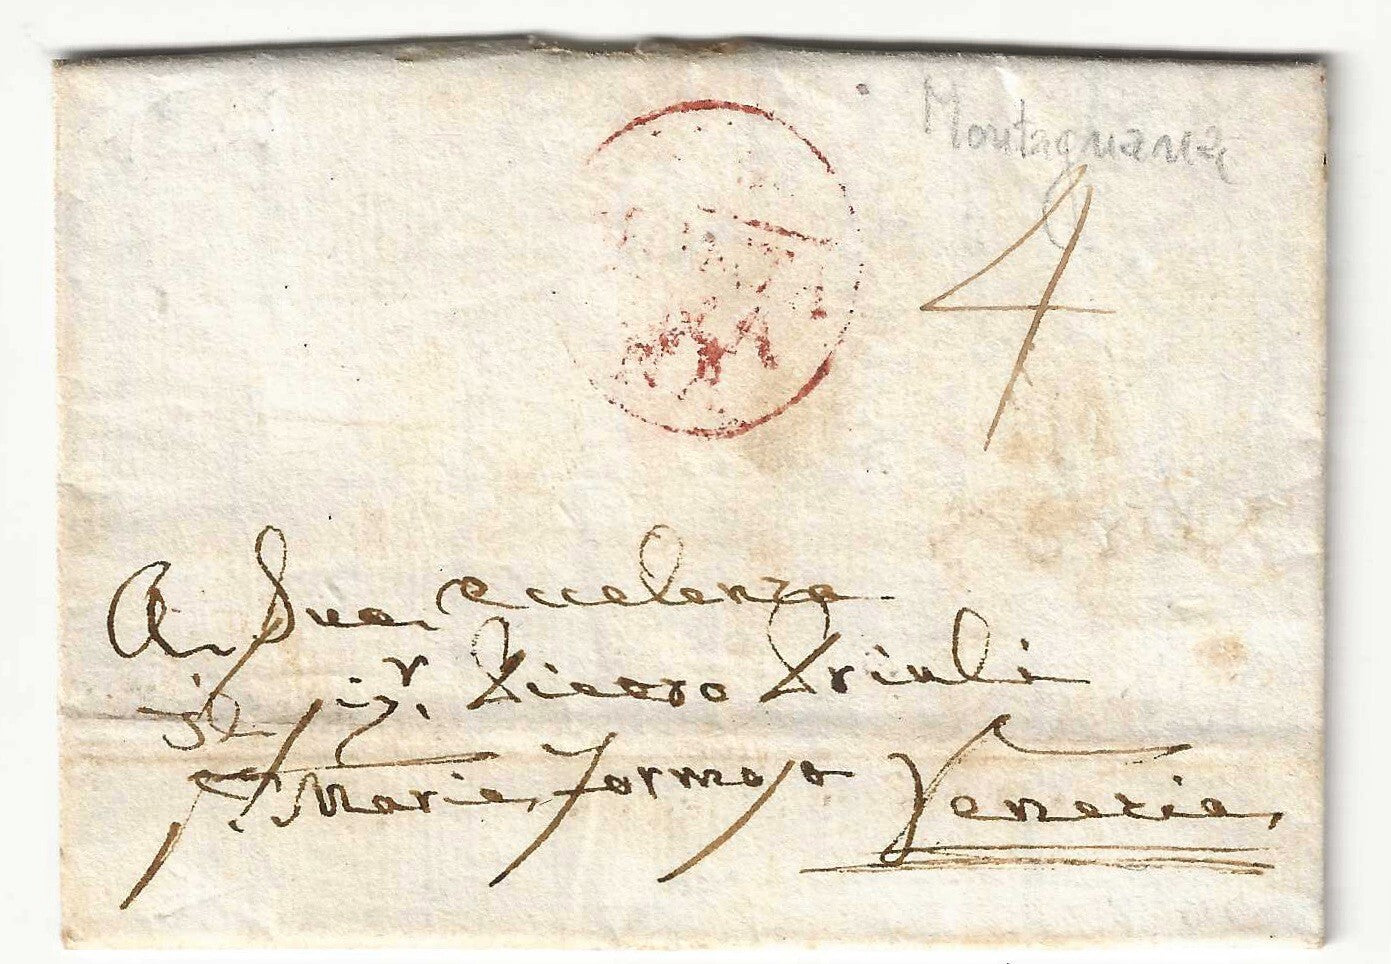 Montagnana
4
A Sua eccelenza
il Sigr. Pietro Priuli
Sta. Maria Formosa Venezia